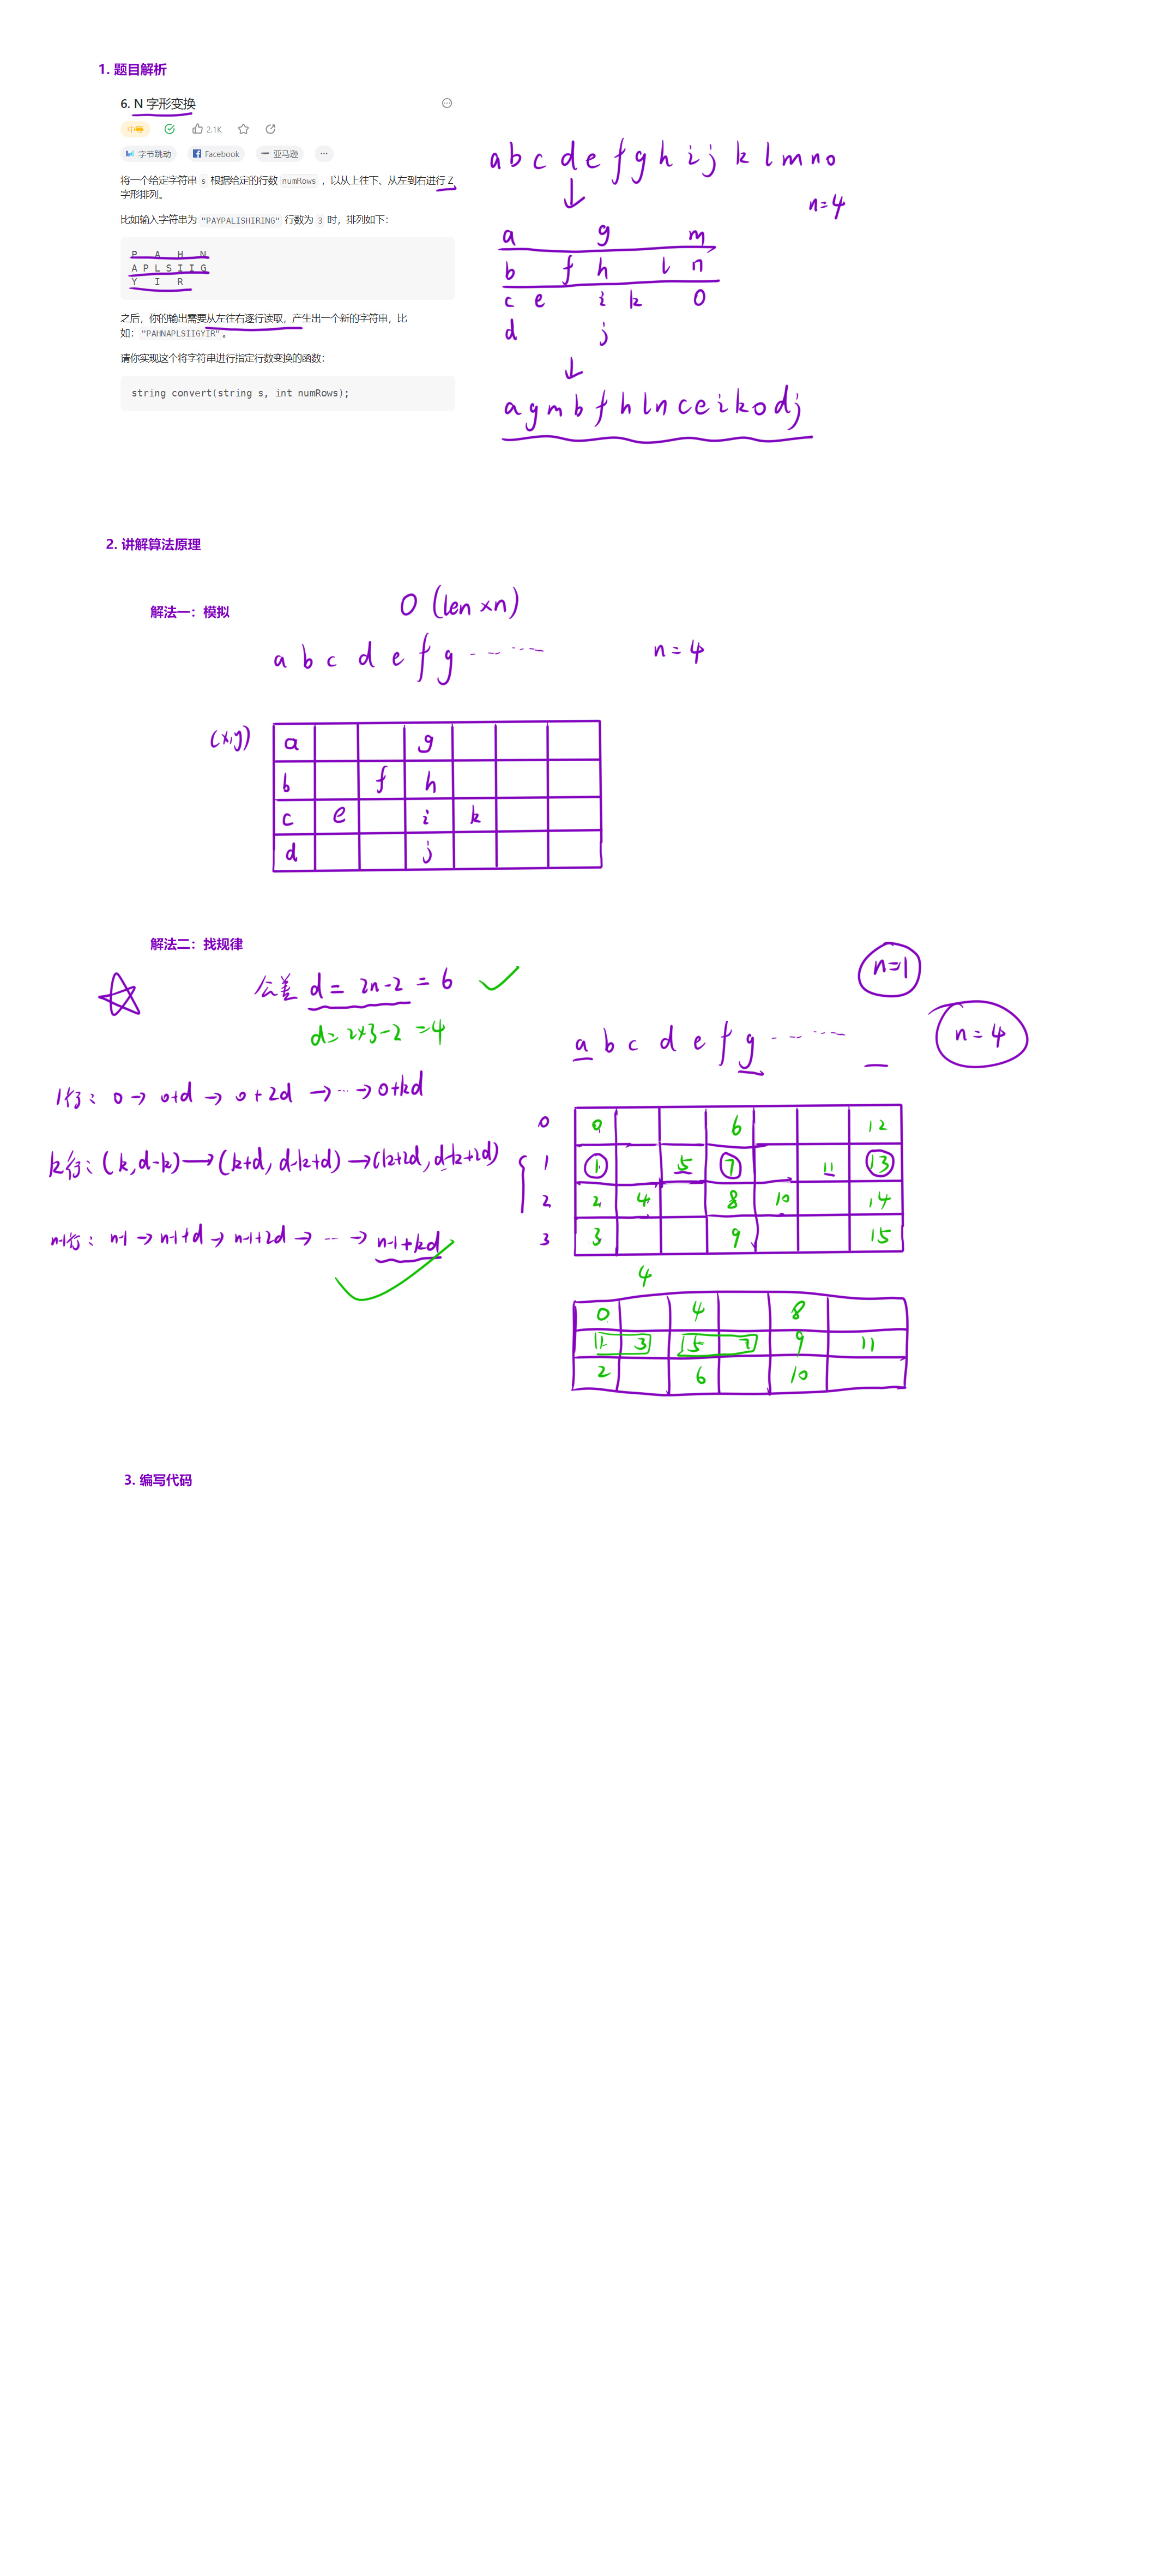 1. 题目解析
6. N 字形变换
中等 2.1K
字节跳动 Facebook 亚马逊 ...
将一个给定字符串 s 根据给定的行数 numRows ，以从上往下、从左到右进行 Z
字形排列。
比如输入字符串为 "PAYPALISHIRING" 行数为 3 时，排列如下：
P A H N
A P L S I I G
Y I R
之后，你的输出需要从左往右逐行读取，产生出一个新的字符串，比
如："PAHNAPLSIIGYIR"。
请你实现这个将字符串进行指定行数变换的函数：
string convert(string s, int numRows);
a b c d e f g h i j k l m n o
n=4
a g m
b f h l n
c e i k o
d j
a g m b f h l n c e i k o d j
2. 讲解算法原理
解法一：模拟
O (len × n)
a b c d e f g ······
n = 4
(x,y)
a g
b f h
c e i k
d j
解法二：找规律
n=1
公差 d = 2n-2 = 6
d= 2×3-2 =4
a b c d e f g ······
n = 4
1行： 0 → 0+d → 0+2d → ··· → 0+kd
k行：(k,d-k) → (k+d, d-k+d) → (k+2d, d-k+2d)
n-1行： n-1 → n-1+d → n-1+2d → ··· → n-1+kd
0 0 6 12
1 1 5 7 11 13
2 2 4 8 10 14
3 3 9 15
4
0 4 8
1 3 5 7 9 11
2 6 10
3. 编写代码